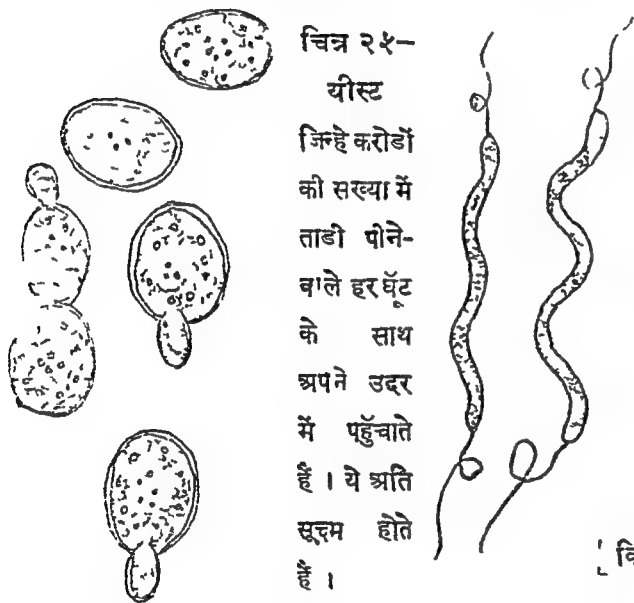 चित्र २५–
यीस्ट
जिन्हे करोडों
की सख्या में
ताडी पीने-
वाले हर घूँट
के साथ
अपने उदर
में पहुँचाते
हैं । ये अति
सूक्ष्म होते
हैं ।